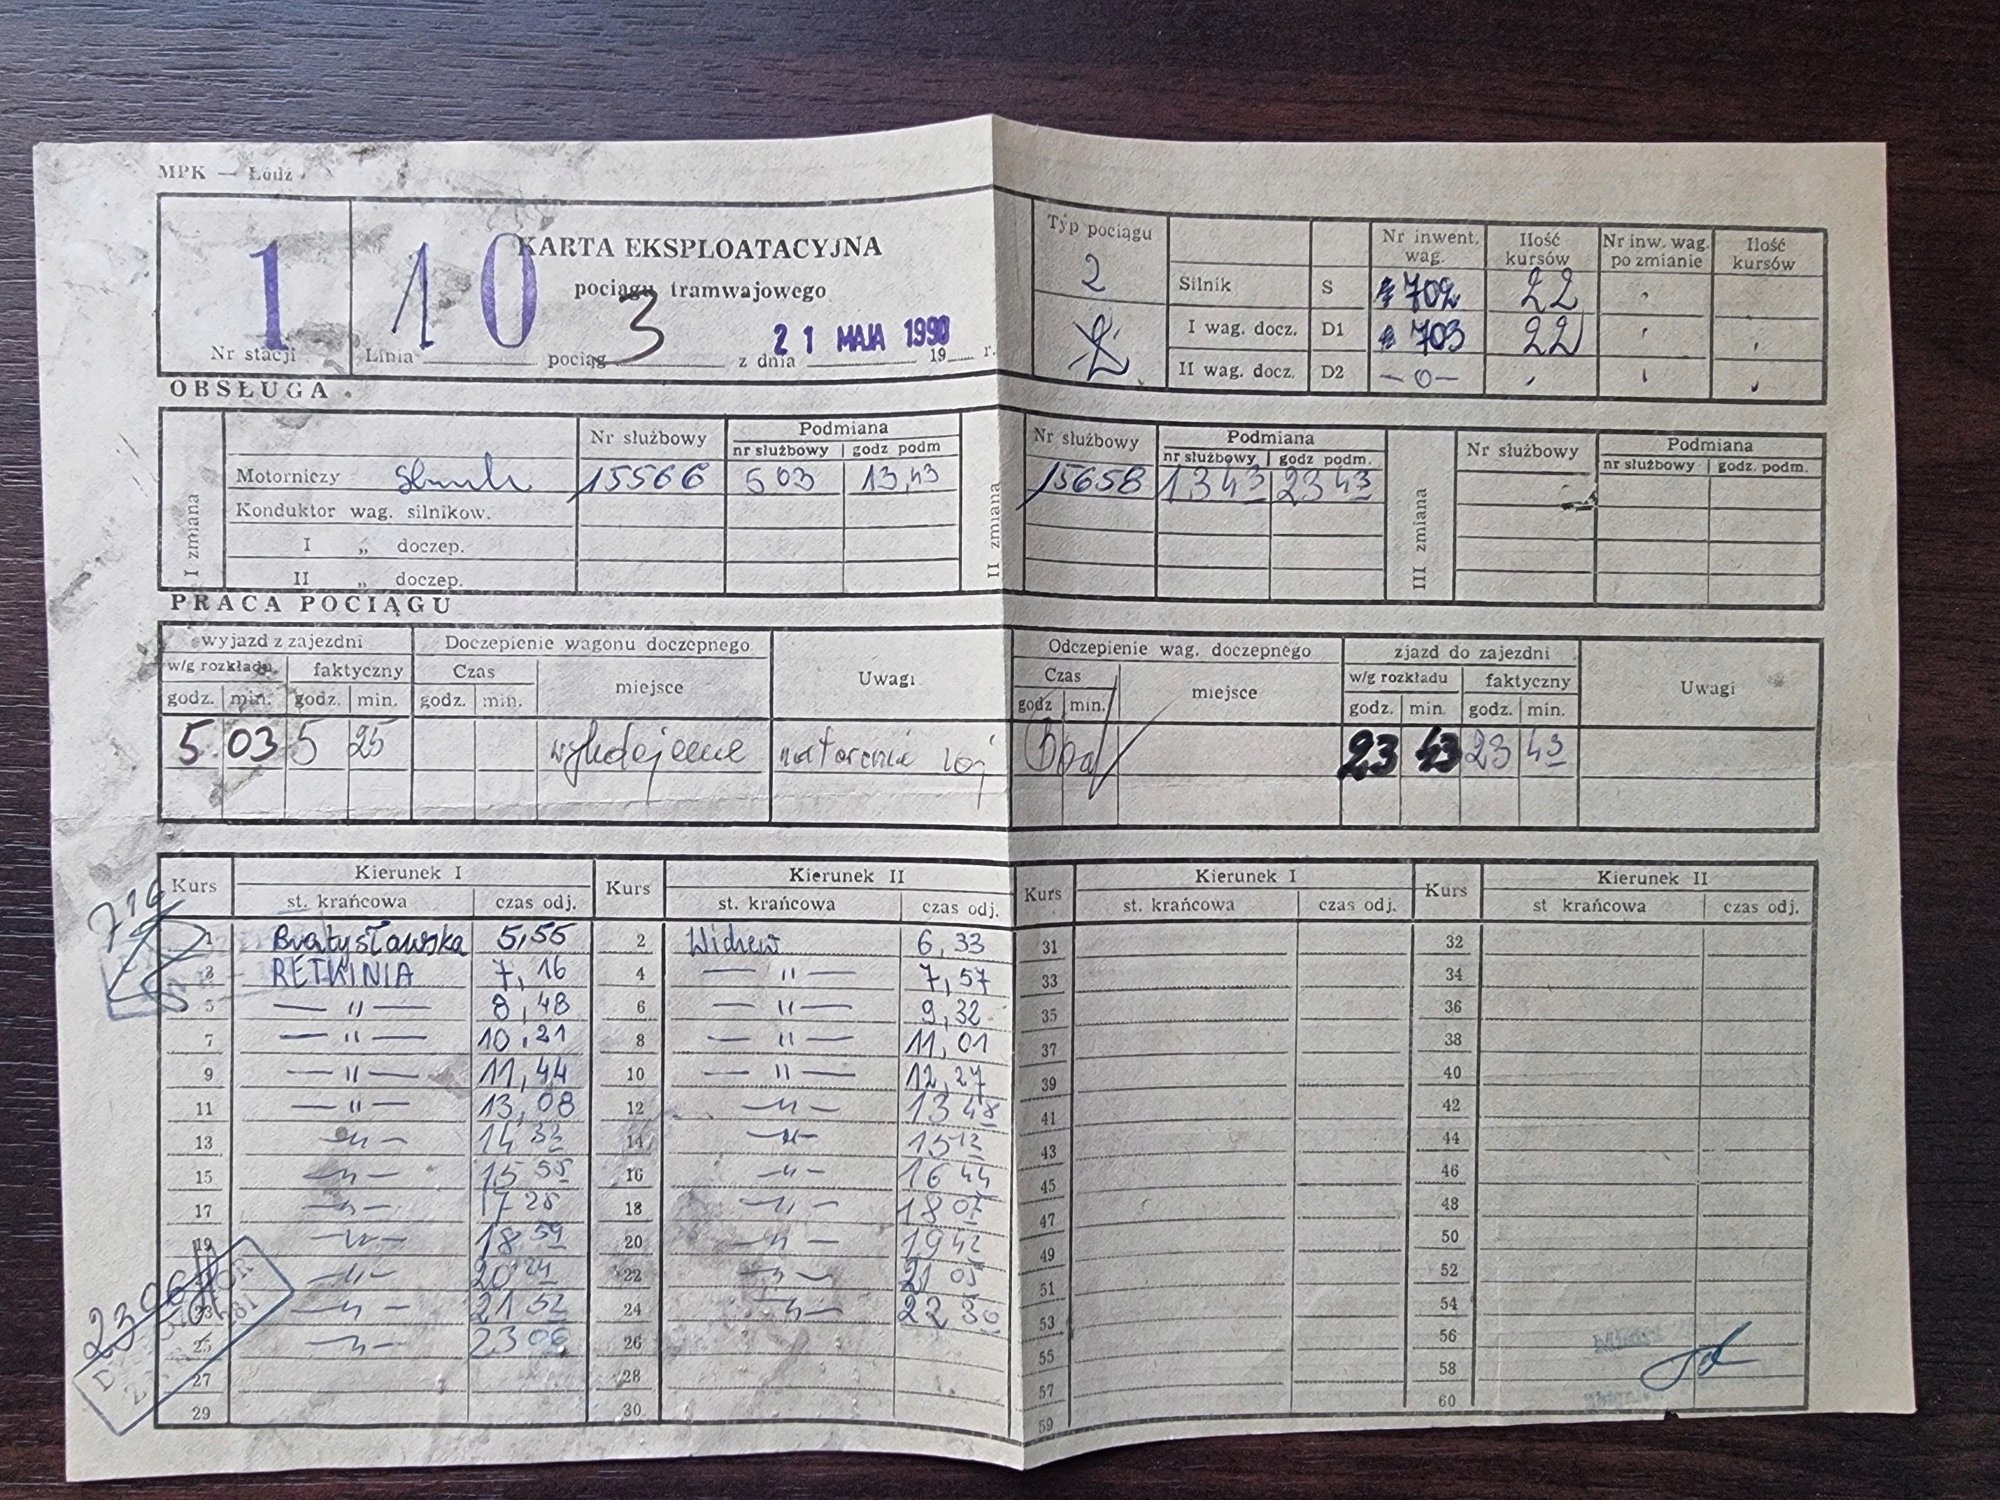 MPK — Łódź
1
Nr stacji
10
KARTA EKSPLOATACYJNA
pociągu tramwajowego
Linia pociąg 3 z dnia 21 MAJA 1990 19 r.
Typ pociągu
2
2
Nr inwent. wag. Ilość kursów Nr inw. wag. po zmianie Ilość kursów
Silnik S 702 22
I wag. docz. D1 703 22
II wag. docz. D2 —0—
OBSŁUGA
I zmiana
Nr służbowy Podmiana
nr służbowy godz podm
Motorniczy 15566 503 13,43
Konduktor wag. silnikow.
I „ doczep.
II „ doczep.
II zmiana
Nr służbowy Podmiana
nr służbowy godz podm.
15658 1343 2343
III zmiana
Nr służbowy Podmiana
nr służbowy godz. podm.
PRACA POCIĄGU
wyjazd z zajezdni Doczepienie wagonu doczepnego Uwagi
w/g rozkładu faktyczny Czas miejsce
godz. min. godz. min. godz. min.
5.03 5 25
Odczepienie wag. doczepnego zjazd do zajezdni Uwagi
Czas miejsce w/g rozkładu faktyczny
godz min. godz. min. godz. min.
23 43 23 43
Kurs Kierunek I Kurs Kierunek II Kurs Kierunek I Kurs Kierunek II
st. krańcowa czas odj. st. krańcowa czas odj. st. krańcowa czas odj. st krańcowa czas odj.
716
1 Bratysławska 5,55 2 Widzew 6,33 31 32
3 RETKINIA 7,16 4 — " — 7,57 33 34
5 — " — 8,48 6 — " — 9,32 35 36
7 — " — 10,21 8 — " — 11,01 37 38
9 — " — 11,44 10 — " — 12,27 39 40
11 — " — 13,08 12 — " — 1348 41 42
13 — " — 1432 14 — " — 1512 43 44
15 — " — 1555 16 — " — 1644 45 46
17 — " — 1725 18 — " — 1807 47 48
19 — " — 1859 20 — " — 1942 49 50
— " — 2024 22 — " — 2105 51 52
23 — " — 2152 24 — " — 2230 53 54
25 — " — 2306 26 55 56
27 28 57 58
29 30 59 60
2306